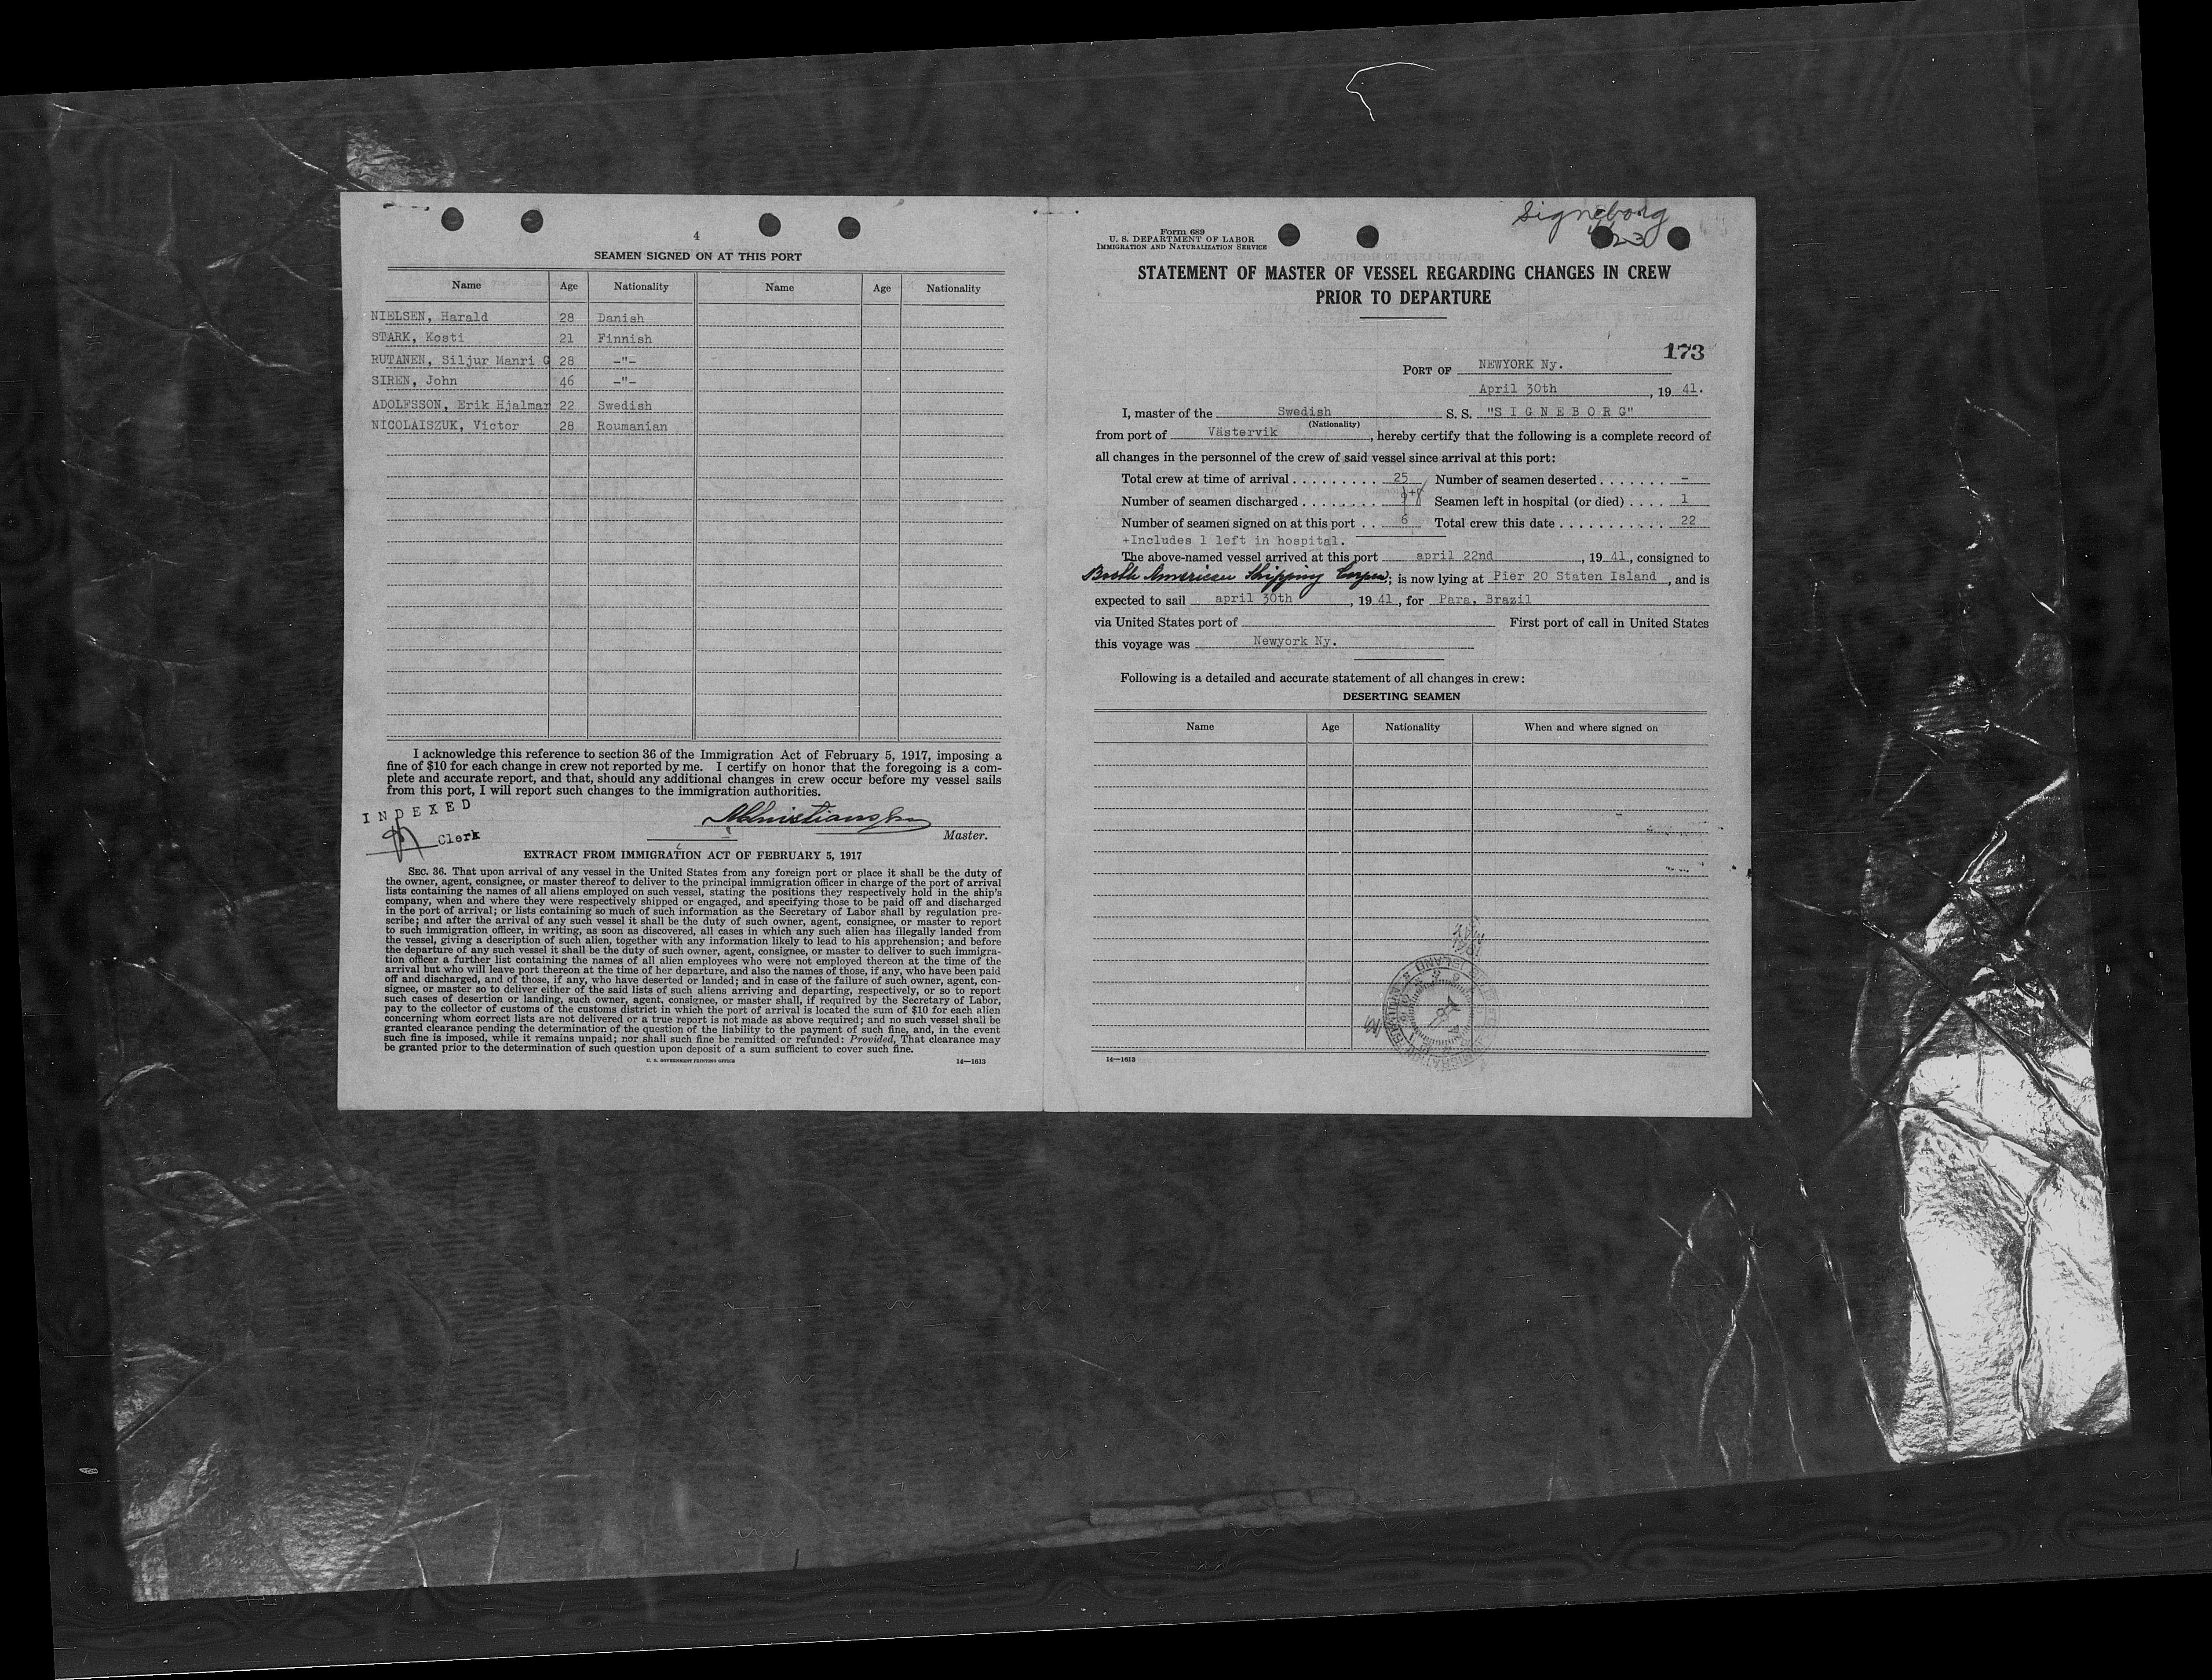 4
SEAMEN SIGNED ON AT THIS PORT
Name Age Nationality Name Age Nationality
NIELSEN, Harald 28 Danish
STARK, Kosti 21 Finnish
RUTANEN, Siljur Manri G 28 -"-
SIREN, John 46 -"-
ADOLFSSON, Erik Hjalmar 22 Swedish
NICOLAISZUK, Victor 28 Roumanian
I acknowledge this reference to section 36 of the Immigration Act of February 5, 1917, imposing a
fine of $10 for each change in crew not reported by me. I certify on honor that the foregoing is a com-
plete and accurate report, and that, should any additional changes in crew occur before my vessel sails
from this port, I will report such changes to the immigration authorities.
INDEXED
Clerk
Master.
EXTRACT FROM IMMIGRATION ACT OF FEBRUARY 5, 1917
SEC. 36. That upon arrival of any vessel in the United States from any foreign port or place it shall be the duty of
the owner, agent, consignee, or master thereof to deliver to the principal immigration officer in charge of the port of arrival
lists containing the names of all aliens employed on such vessel, stating the positions they respectively hold in the ship's
company, when and where they were respectively shipped or engaged, and specifying those to be paid off and discharged
in the port of arrival; or lists containing so much of such information as the Secretary of Labor shall by regulation pre-
scribe; and after the arrival of any such vessel it shall be the duty of such owner, agent, consignee, or master to report
to such immigration officer, in writing, as soon as discovered, all cases in which any such alien has illegally landed from
the vessel, giving a description of such alien, together with any information likely to lead to his apprehension; and before
the departure of any such vessel it shall be the duty of such owner, agent, consignee, or master to deliver to such immigra-
tion officer a further list containing the names of all alien employees who were not employed thereon at the time of the
arrival but who will leave port thereon at the time of her departure, and also the names of those, if any, who have been paid
off and discharged, and of those, if any, who have deserted or landed; and in case of the failure of such owner, agent, con-
signee, or master so to deliver either of the said lists of such aliens arriving and departing, respectively, or so to report
such cases of desertion or landing, such owner, agent, consignee, or master shall, if required by the Secretary of Labor,
pay to the collector of customs of the customs district in which the port of arrival is located the sum of $10 for each alien
concerning whom correct lists are not delivered or a true report is not made as above required; and no such vessel shall be
granted clearance pending the determination of the question of the liability to the payment of such fine, and, in the event
such fine is imposed, while it remains unpaid; nor shall such fine be remitted or refunded: Provided, That clearance may
be granted prior to the determination of such question upon deposit of a sum sufficient to cover such fine.
U. S. GOVERNMENT PRINTING OFFICE 14—1613
Signeborg
Form 689
U. S. DEPARTMENT OF LABOR
IMMIGRATION AND NATURALIZATION SERVICE
STATEMENT OF MASTER OF VESSEL REGARDING CHANGES IN CREW
PRIOR TO DEPARTURE
173
PORT OF NEWYORK Ny.
April 30th, 19 41.
I, master of the Swedish S. S. "S I G N E B O R G"
(Nationality)
from port of Västervik, hereby certify that the following is a complete record of
all changes in the personnel of the crew of said vessel since arrival at this port:
Total crew at time of arrival 25 Number of seamen deserted -
Number of seamen discharged Seamen left in hospital (or died) 1
Number of seamen signed on at this port 6 Total crew this date 22
+Includes 1 left in hospital.
The above-named vessel arrived at this port april 22nd, 19 41, consigned to
Booth American Shipping Corpn; is now lying at Pier 20 Staten Island, and is
expected to sail april 30th, 19 41, for Para, Brazil
via United States port of First port of call in United States
this voyage was Newyork Ny.
Following is a detailed and accurate statement of all changes in crew:
DESERTING SEAMEN
Name Age Nationality When and where signed on
14—1613